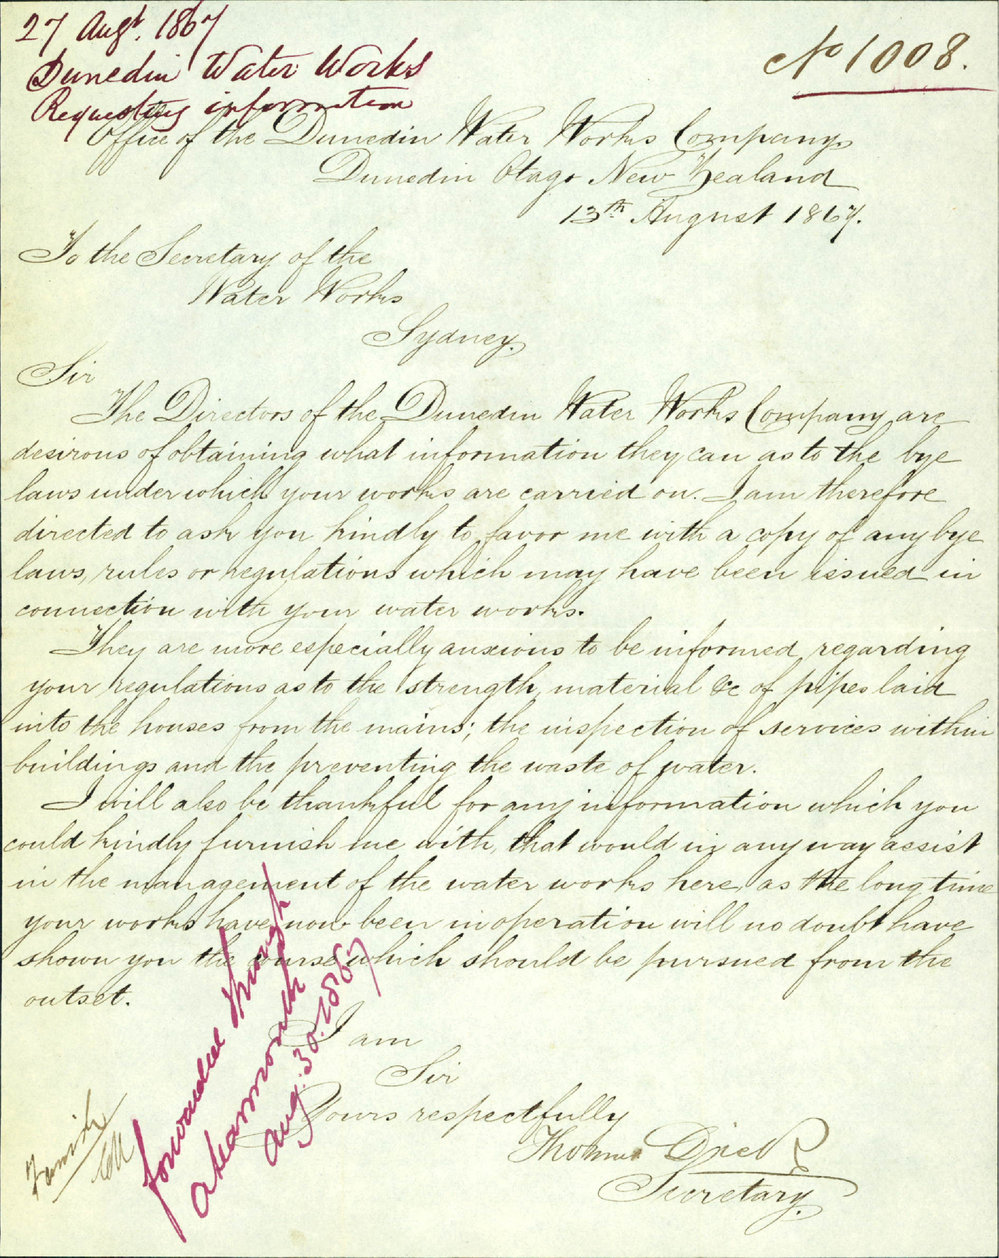 27 Augt. 1867
Dunedin Water Works
Requesting information
No 1008.
Office of the Dunedin Water Works Company
Dunedin Otago New Zealand
13th August 1867.
To the Secretary of the
Water Works
Sydney
Sir
The Directors of the Dunedin Water Works Company are
desirous of obtaining what information they can as to the bye
laws under which your works are carried on. I am therefore
directed to ask you kindly to favor me with a copy of any bye
laws, rules or regulations which may have been issued in
connection with your water works.
They are more especially anxious to be informed regarding
your regulations as to the strength, material &c of pipes laid
into the houses from the mains; the inspection of services within
buildings and the preventing the waste of water.
I will also be thankful for any information which you
could kindly furnish me with, that would in any way assist
in the management of the water works here, as the long time
your works have now been in operation will no doubt have
shown you the course which should be pursued from the
outset.
I am
Sir
Yours respectfully
Thomas
Secretary
forwarded through
Aug. 30. 1867